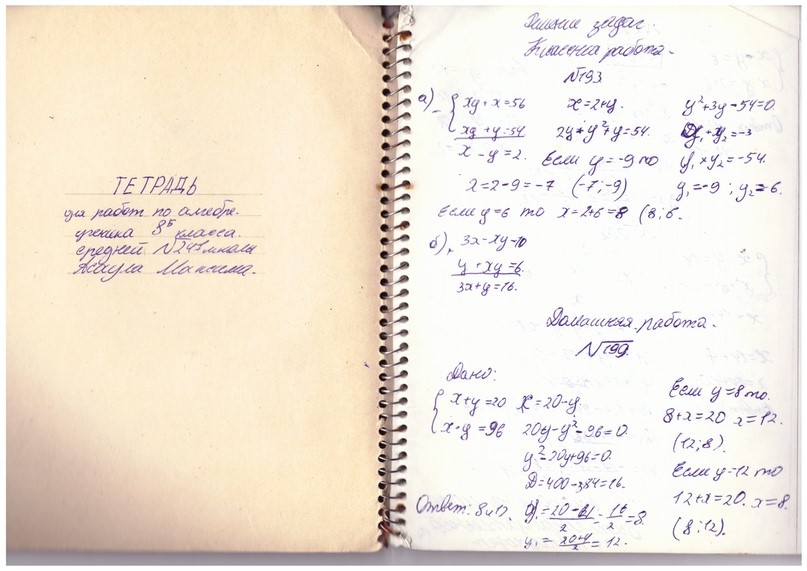 ТЕТРАДЬ
для работ по алгебре.
ученика 8Б класса.
средней №247 школы
Максима.
Решение задач.
Классная работа.
№193
а) - { xy + x = 56
xy + y = 54
x - y = 2.
x = 2 + y.
2y + y² + y = 54.
y² + 3y - 54 = 0
y₁ + y₂ = -3
y₁ × y₂ = -54.
y₁ = -9; y₂ = 6.
Если y = -9 то
x = 2 - 9 = -7 (-7; -9)
Если y = 6 то x = 2 + 6 = 8 (8; 6.
б) + 3x - xy = 10
y + xy = 6.
3x + y = 16.
Домашняя работа.
№199.
Дано:
{ x + y = 20
x · y = 96
x = 20 - y.
20y - y² - 96 = 0.
y² - 20y + 96 = 0.
D = 400 - 384 = 16.
= 16/2 = 8.
y₁ = 20+4/2 = 12.
Ответ: 8 и 12.
Если y = 8 то.
8 + x = 20 x = 12.
(12; 8).
Если y = 12 то
12 + x = 20. x = 8.
(8; 12).